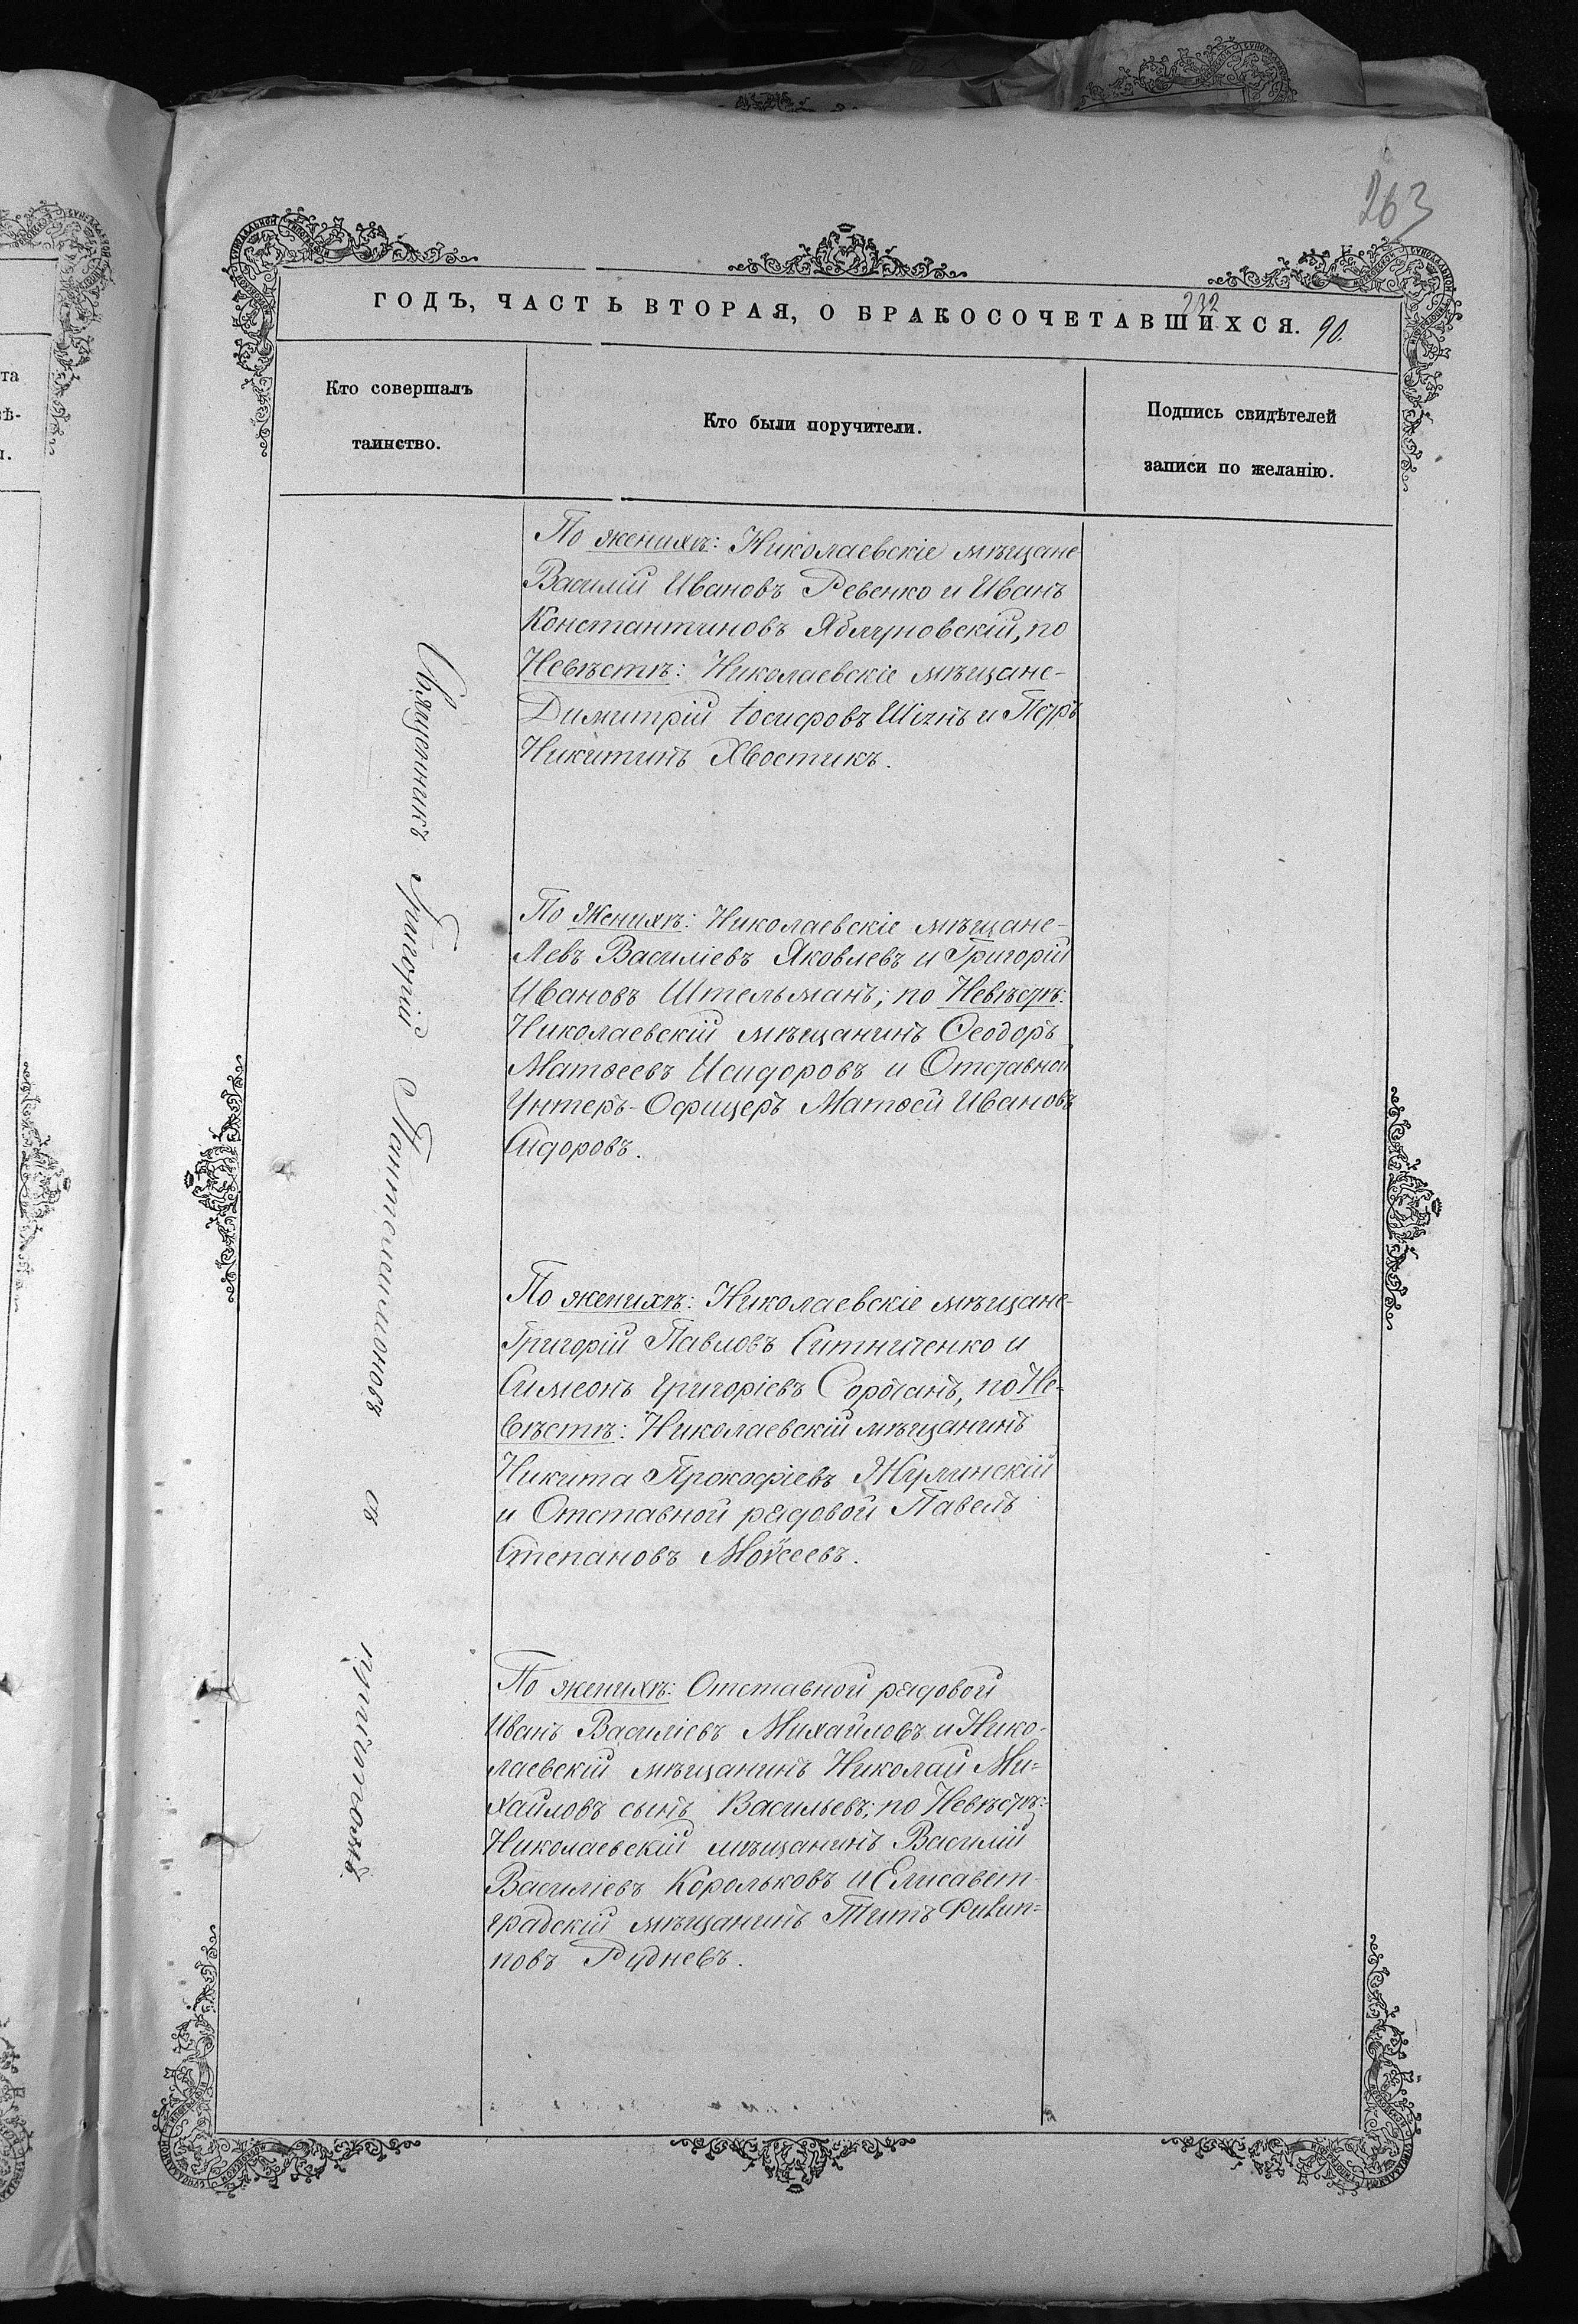 263
ГОДЪ, ЧАСТЬ ВТОРАЯ, О БРАКОСОЧЕТАВШИХСЯ.
232
90.
Кто совершалъ
таинство.
Кто были поручители.
Подпись свидѣтелей
записи по желанію.
Священникъ Григорій Пантелеимоновъ съ
По женихѣ: Николаевскіе мѣщане
Василій Ивановъ Ревенко и Иванъ
Константиновъ Яблуновскій, по
Невѣстѣ: Николаевскіе мѣщане-
Димитрій Іосифовъ и Петръ
Никитинъ Хвостикъ.
По Женихѣ: Николаевскіе мѣщане-
Левъ Василіевъ Яковлевъ и Григорій
Ивановъ Штельманъ; по Невѣстѣ:
Николаевскій мѣщанинъ Ѳеодоръ
Матѳеевъ Исидоровъ и Отставной
Унтеръ-Офицеръ Матѳей Ивановъ
Сидоровъ.
По женихѣ: Николаевскіе мѣщане-
Григорій Павловъ Ситниченко и
Симеонъ Григоріевъ Сорочанъ, по Не-
вѣстѣ: Николаевскій мѣщанинъ
Никита Прокофіевъ Жулинскій
и Отставной рядовой Павелъ
Степановъ Моѵсеевъ.
По женихѣ: Отставной рядовой
Иванъ Василіевъ Михайловъ и Нико-
лаевскій мѣщанинъ Николай Ми-
хайловъ сынъ Васильевъ; по Невѣстѣ:
Николаевскій мѣщанинъ Василій
Василіевъ Корольковъ и Елисавет-
градскій мѣщанинъ Титъ Филип-
повъ Рудневъ.
та
вѣ-